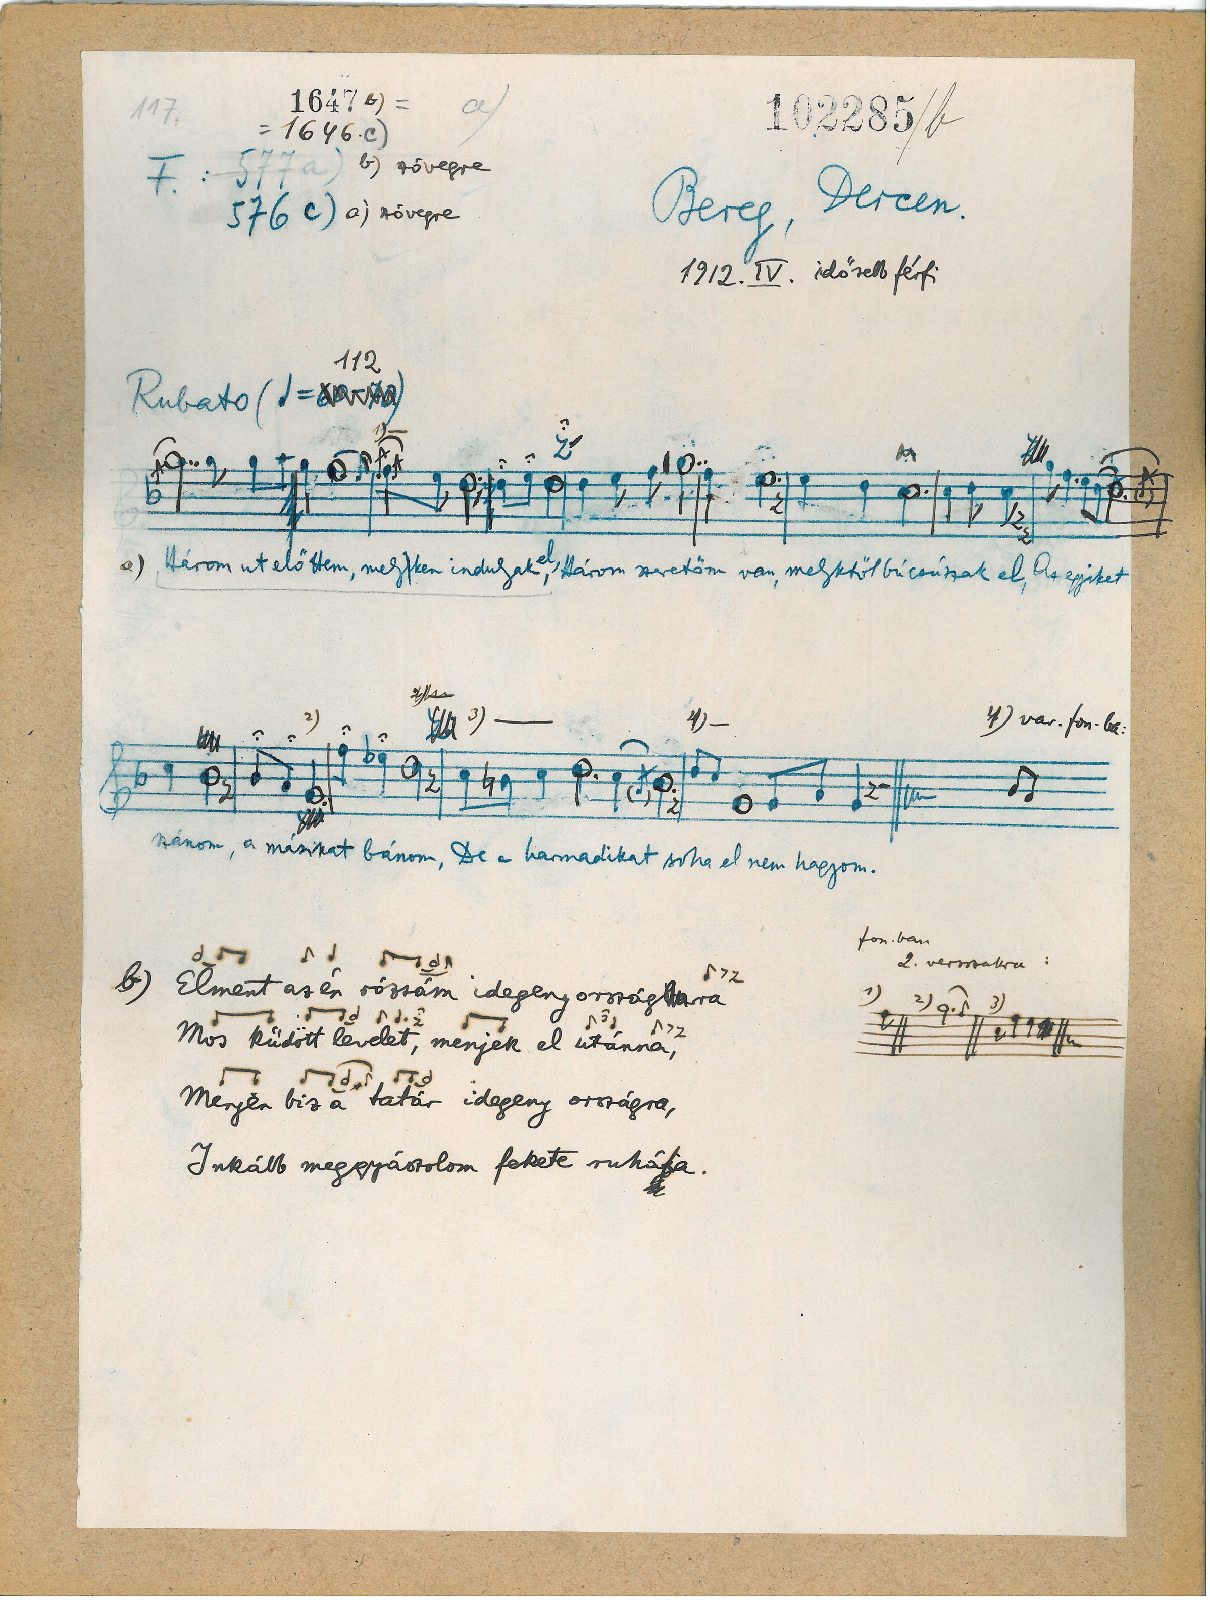 117.
1647 b) = a)
= 1646 c)
102285/b
F. : 577 a) b) szövegre
576 c) a) szövegre
Bereg, Dercen.
1912. IV. idősebb férfi
112
Rubato ( =
1)
a) Három ut előttem, melyiken induljak el, Három szeretőm van, melyktől búcsúzzak el, Az egyiket
2) 3) 4) 4) var. fon.-ba:
szánom, a másikat bánom, De a harmadikat soha el nem hagyom.
fon.ban
2. versszakra :
1) 2) 3)
b) Elment az én rózsám idegeny országra
Mos küdött levelet, menjek el utánna,
Menjén biz a tatár idegeny országra,
Inkább meggyászolom fekete ruhája.